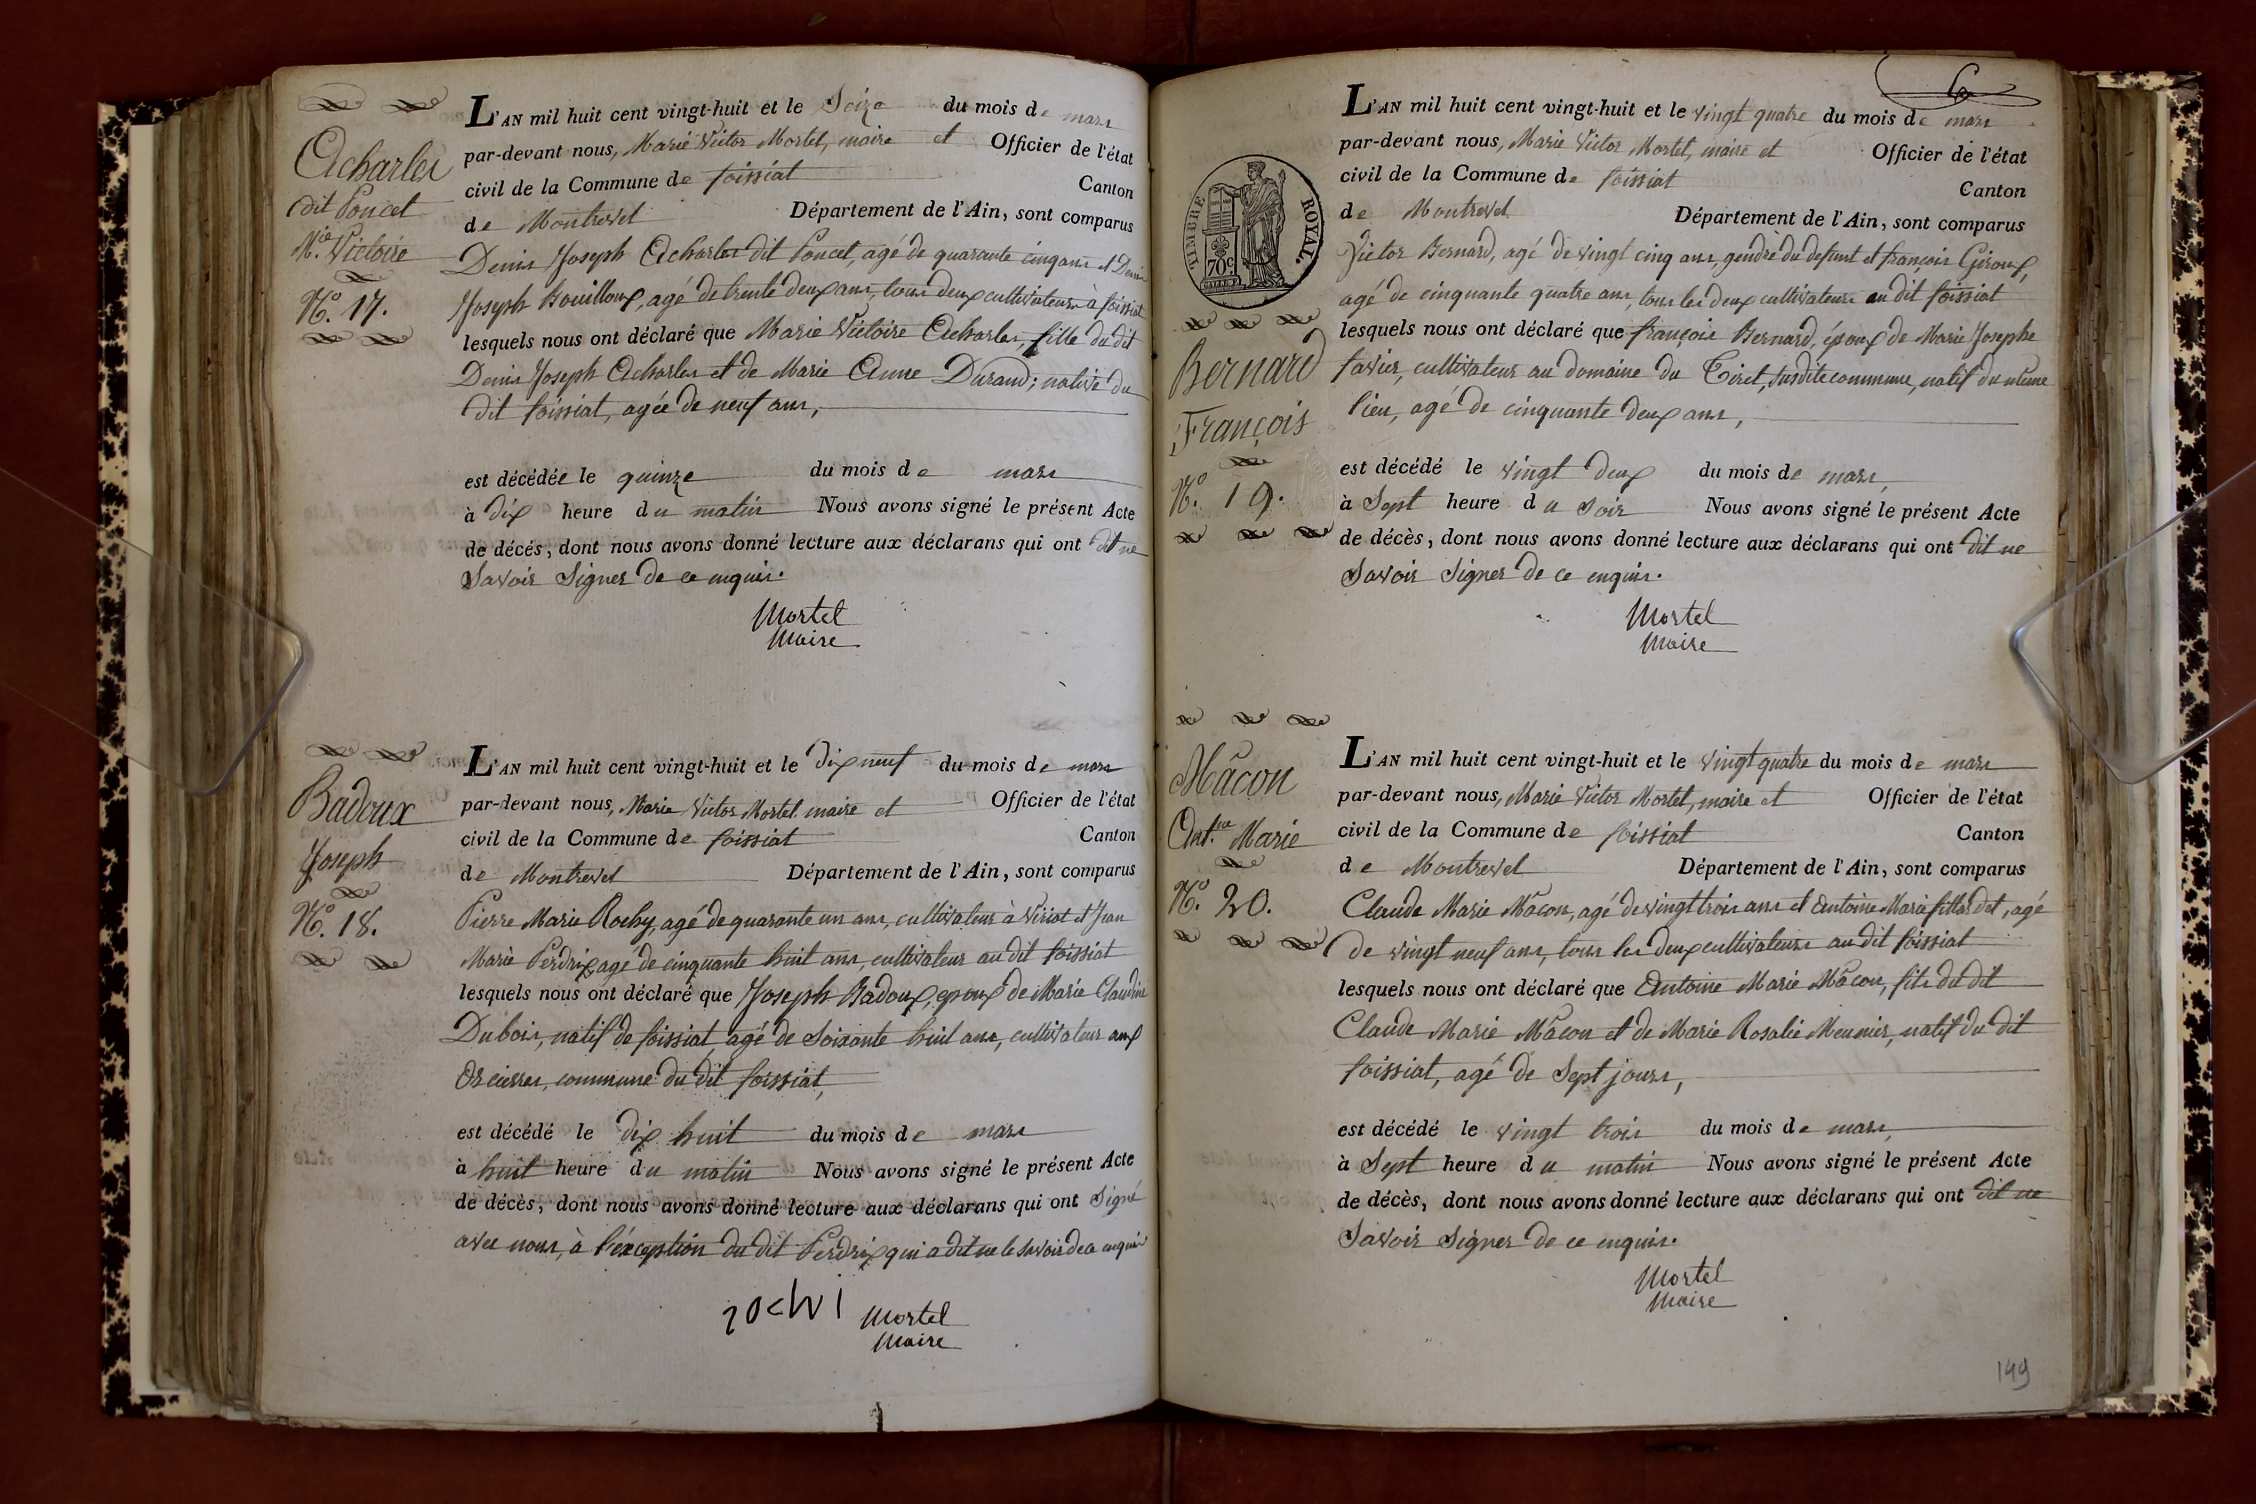 Acharles
dit Poncet
M.ie Victoire
N.o 17.
L'AN mil huit cent vingt-huit et le Seize du mois de mars
par-devant nous, Marie Victor Mortel, maire et Officier de l'état
civil de la Commune de foissiat Canton
de Montrevel Département de l'Ain, sont comparus
Denis Joseph Acharles dit Poncet, agé de quarante cinq ans et Denis
Joseph Bouilloux, agé de trente deux ans, tous deux cultivateurs à foissiat
lesquels nous ont déclaré que Marie Victoire Acharles, fille du dit
Denis Joseph Acharles et de Marie Anne Durand; native du
dit foissiat, agée de neuf ans,
est décédée le quinze du mois de mars
à dix heure du matin Nous avons signé le présent Acte
de décés, dont nous avons donné lecture aux déclarans qui ont dit ne
Savoir Signer de ce enquis.
Mortel
Maire
Badoux
Joseph
N.o 18.
L'AN mil huit cent vingt-huit et le dix neuf du mois de mars
par-devant nous, Marie Victor Mortel maire et Officier de l'état
civil de la Commune de foissiat Canton
de Montrevel Département de l'Ain, sont comparus
Pierre Marie Rochy, agé de quarante un ans, cultivateur à Viriat et Jean
Marie Perdrix agé de cinquante huit ans, cultivateur au dit foissiat
lesquels nous ont déclaré que Joseph Badoux, epoux de Marie Claudine
Dubois, natif de foissiat agé de Soixante huit ans, cultivateur aux
Orcieres, commune du dit foissiat,
est décédé le dix huit du mois de mars
à huit heure du matin Nous avons signé le présent Acte
de décès, dont nous avons donné lecture aux déclarans qui ont Signé
avec nous, à l'éxception du dit Perdrix qui a dit ne le savoir de ce enquis
rochi Mortel
Maire
6
TIMBRE ROYAL.
70c
Bernard
François
N.o 19.
L'AN mil huit cent vingt-huit et le vingt quatre du mois de mars
par-devant nous, Marie Victor Mortel, maire et Officier de l'état
civil de la Commune de foissiat Canton
de Montrevel Département de l'Ain, sont comparus
Victor Bernard, agé de vingt cinq ans, gendre du defunt et françois Giroux,
agé de cinquante quatre ans, tous les deux cultivateurs au dit foissiat
lesquels nous ont déclaré que françois Bernard, époux de Marie Josephe
favier, cultivateur au domaine du Tiret, susdite commune, natif du même
lieu, agé de cinquante deux ans,
est décédé le vingt deux du mois de mars,
à Sept heure du Soir Nous avons signé le présent Acte
de décès, dont nous avons donné lecture aux déclarans qui ont dit ne
Savoir Signer de ce enquis.
Mortel
Maire
Mâcon
Ant.ne Marie
N.o 20.
L'AN mil huit cent vingt-huit et le vingt quatre du mois de mars
par-devant nous, Marie Victor Mortel, maire et Officier de l'état
civil de la Commune de foissiat Canton
de Montrevel Département de l'Ain, sont comparus
Claude Marie Mâcon, agé de vingt trois ans et Antoine Marie fillardet, agé
de vingt neuf ans, tous les deux cultivateurs au dit foissiat
lesquels nous ont déclaré que Antoine Marie Mâcon, fils du dit
Claude Marie Mâcon et de Marie Rosalie Meunier, natif du dit
foissiat, agé de Sept jours,
est décédé le vingt trois du mois de mars,
à Sept heure du matin Nous avons signé le présent Acte
de décès, dont nous avons donné lecture aux déclarans qui ont dit ne
Savoir Signer de ce enquis.
Mortel
Maire
149